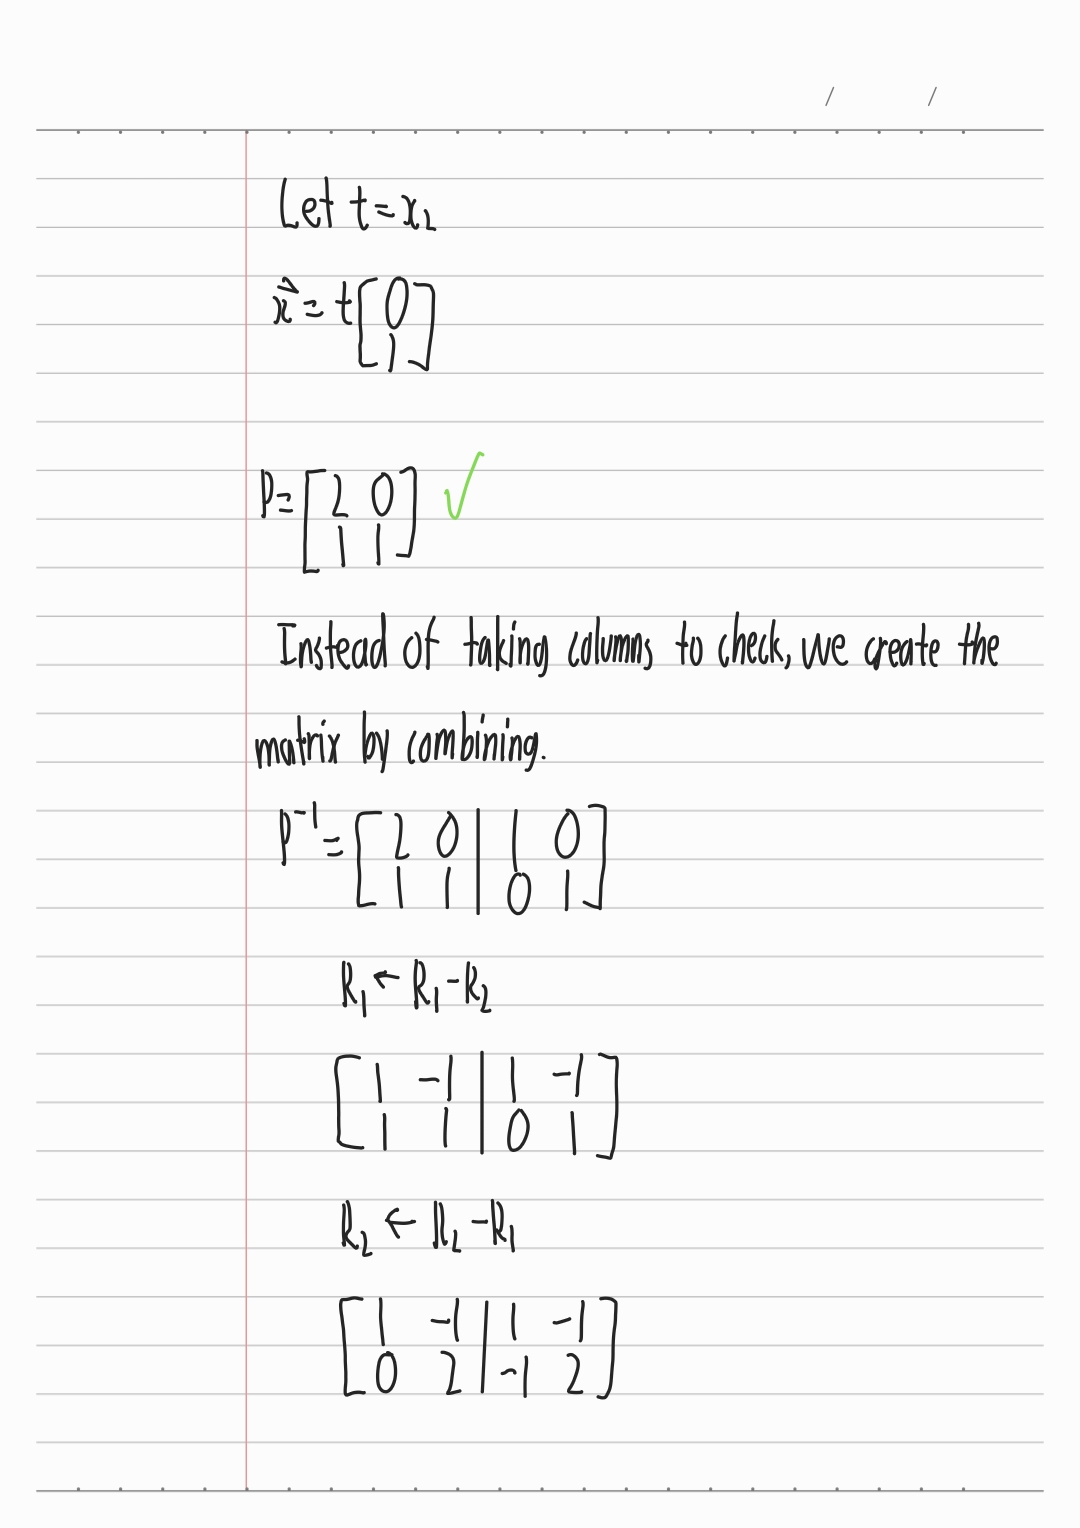 / /
Let t = x₂
x⃗ = t [ 0
1 ]
P = [ 2 0
1 1 ] ✓
Instead of taking columns to check, we create the
matrix by combining.
P⁻¹ = [ 2 0 | 1 0
1 1 | 0 1 ]
R₁ ← R₁ - R₂
[ 1 -1 | 1 -1
1 1 | 0 1 ]
R₂ ← R₂ - R₁
[ 1 -1 | 1 -1
0 2 | -1 2 ]